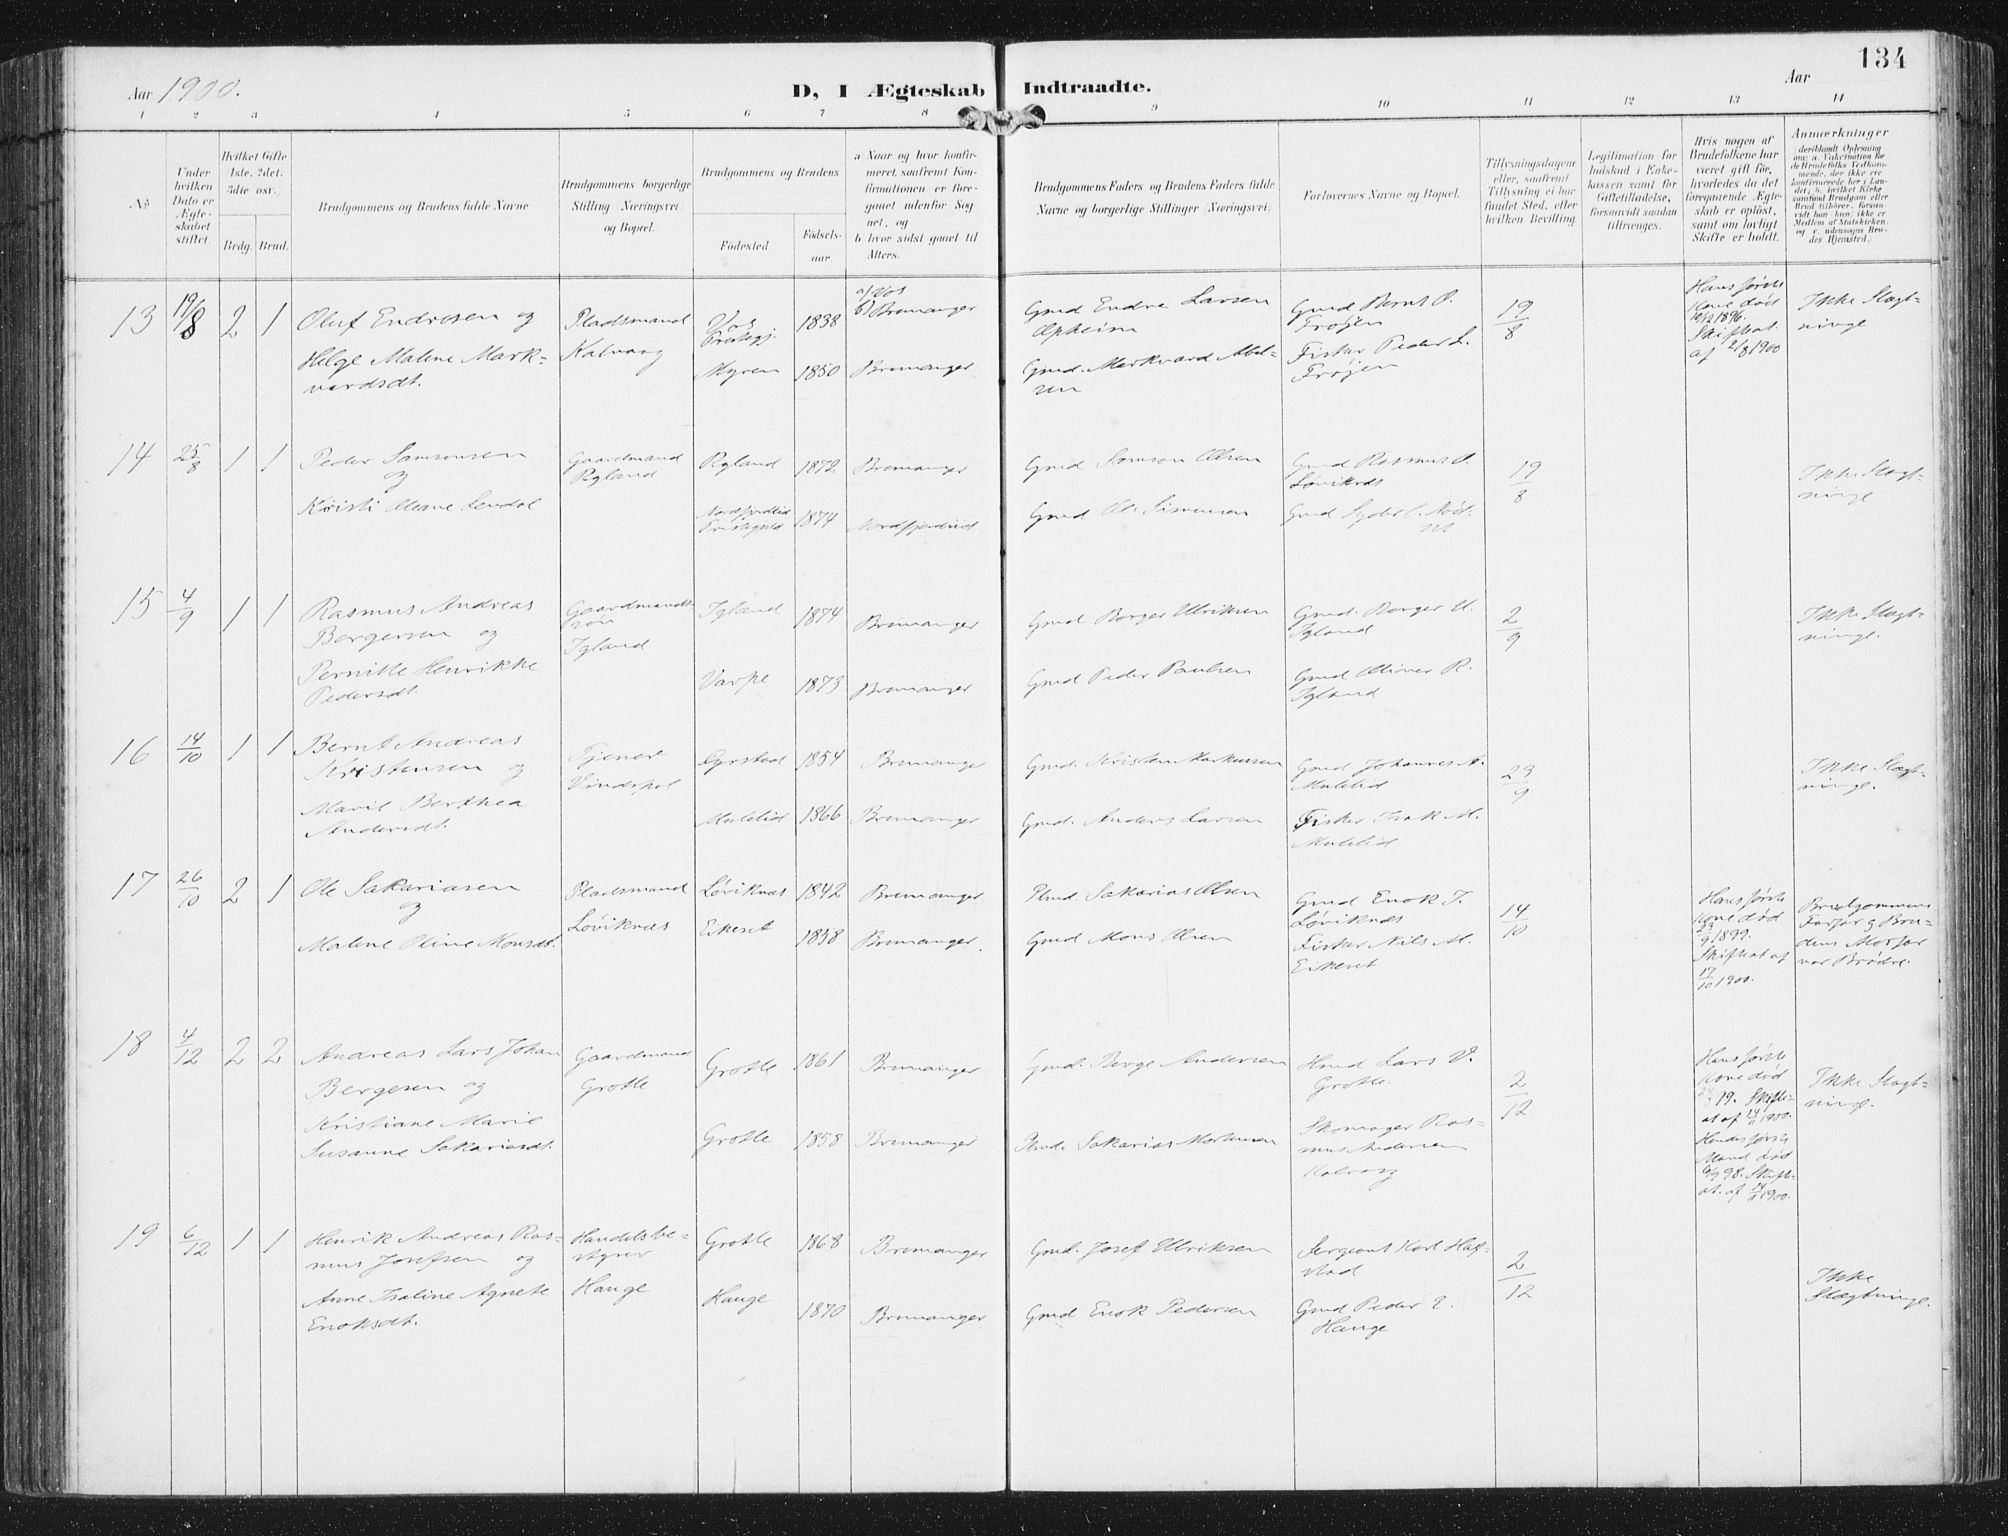 134
Aar 1900.
D, I Ægteskab Indtraadte.
Aar
1 2 3 4 5 6 7 8 9 10 11 12 13 14
No
Under hvilken Dato er Ægteskabet stiftet.
Hvilket Gifte 1ste. 2det. 3die osv.
Brdg. Brud.
Brudgommens og Brudens fulde Navne
Brudgommens borgerlige Stilling (Næringsvei) og Bopæl.
Brudgommens og Brudens
Födested.
Födsels-aar
a Naar og hvor konfirmeret, saafremt Konfirmationen er foregaaet udenfor Sognet, og
b hvor sidst gaaet til Alters.
Brudgommens Faders og Brudens Faders fulde Navne og borgerlige Stillinger (Næringsvei)
Forlovernes Navne og Bopæl.
Tillysningsdagene eller, saafremt Tillysning ei har fundet Sted, efter hvilken Bevilling.
Legitimation for Indskud i Enkekassen samt for Giftetilladelse, forsaavidt saadan tiltrænges.
Hvis nogen af Brudefolkene har været gift før, hvorledes da det foregaaende Ægteskab er opløst, samt om lovligt Skifte er holdt.
Anmærkninger
13 19/8 2 1 Oluf Endresen og Pladsmand 1838 a) Vos b) Bremanger Gmd Endre Larsen Gmd Bernt O. 19/8 Hans første Kone død 1896. Skifteat. af 2/8 1900 Ikke Slægt-
Helge Malene Mark- Kalvaag Opheim Frøjen ninge
vardsdt. Myren 1850 Bremanger Gmd. Markvard Abel- Fisker Peder L.
sen Frøjen
14 25/8 1 1 Peder Samsonsen Gaardmand Ryland 1872 Bremanger Gmd Samson Olsen Gmd Rasmus O. 19/8 Ikke Slægt-
og Ryland Løviknæs ninge
Kristi Oleane Lendol Nordfjordeid 1874 Nordfjordeid Gmd Ole Simonsen Gmd
15 4/9 1 1 Rasmus Andreas Gaardmands- Igland 1874 Bremanger Gmd Borger Ulriksen Gmd. Borger U. 2/9 Ikke Slægt-
Borgersen og søn Igland ninge.
Pernille Henrikke Igland Varpe 1873 Bremanger Gmd Peder Paulsen Gmd Oliver R.
Pedersdt. Igland
16 14/10 1 1 Bernt Andreas Tjener Dyrstad 1854 Bremanger Gmd. Kristen Markussen Gmd Johannes A. 23/9 Ikke Slægt-
Kristensen og Vindspol Mulelid ninge.
Marie Berthea Mulelid 1866 Bremanger Gmd. Anders Larsen Fisker Isak M.
Andersdt. Mulelid
17 26/10 2 1 Ole Sakariasen Pladsmand Løviknæs 1842 Bremanger Plmd. Sakarias Olsen Gmd Enok J. 14/10 Hans første Kone død 23/9 1899. Skifteat af 17/10 1900. Brudgommens Farfar og Bru-
og Løviknæs Løviknæs dens Morfar
Malene Oline Monsdt. Eikeset 1858 Bremanger. Gmd Mons Olsen Fisker Nils M. var Brødre.
Eikeset
18 4/12 2 2 Andreas Lars Johan Gaardmand Grotle 1861 Bremanger Gmd. Berge Andersen Hmd Lars V. 2/12 Hans første Kone død Skifteat af 14/11 1900. Ikke Slægt-
Bergesen og Grotle Grotle. ninge.
Kristiane Marie Grotle 1858 Bremanger Plmd. Sakarias Mortensen Skomager Ras- Hendes første Mand død 98. Skifte-
Susanne Sakariasdt. mus Andersen at. af 14/11 1900.
Kalvaag
19 6/12 1 1 Henrik Andreas Ras- Handelsbe- Grotle 1868 Bremanger Gmd. Josef Ulriksen Sergeant Karl Haf- 2/12 Ikke
mus Josefsen og styrer stad Slægtninge.
Anne Isaline Agnete Hauge Hauge 1870 Bremanger Gmd Enok Pedersen Gmd Peder E.
Enoksdt. Hauge